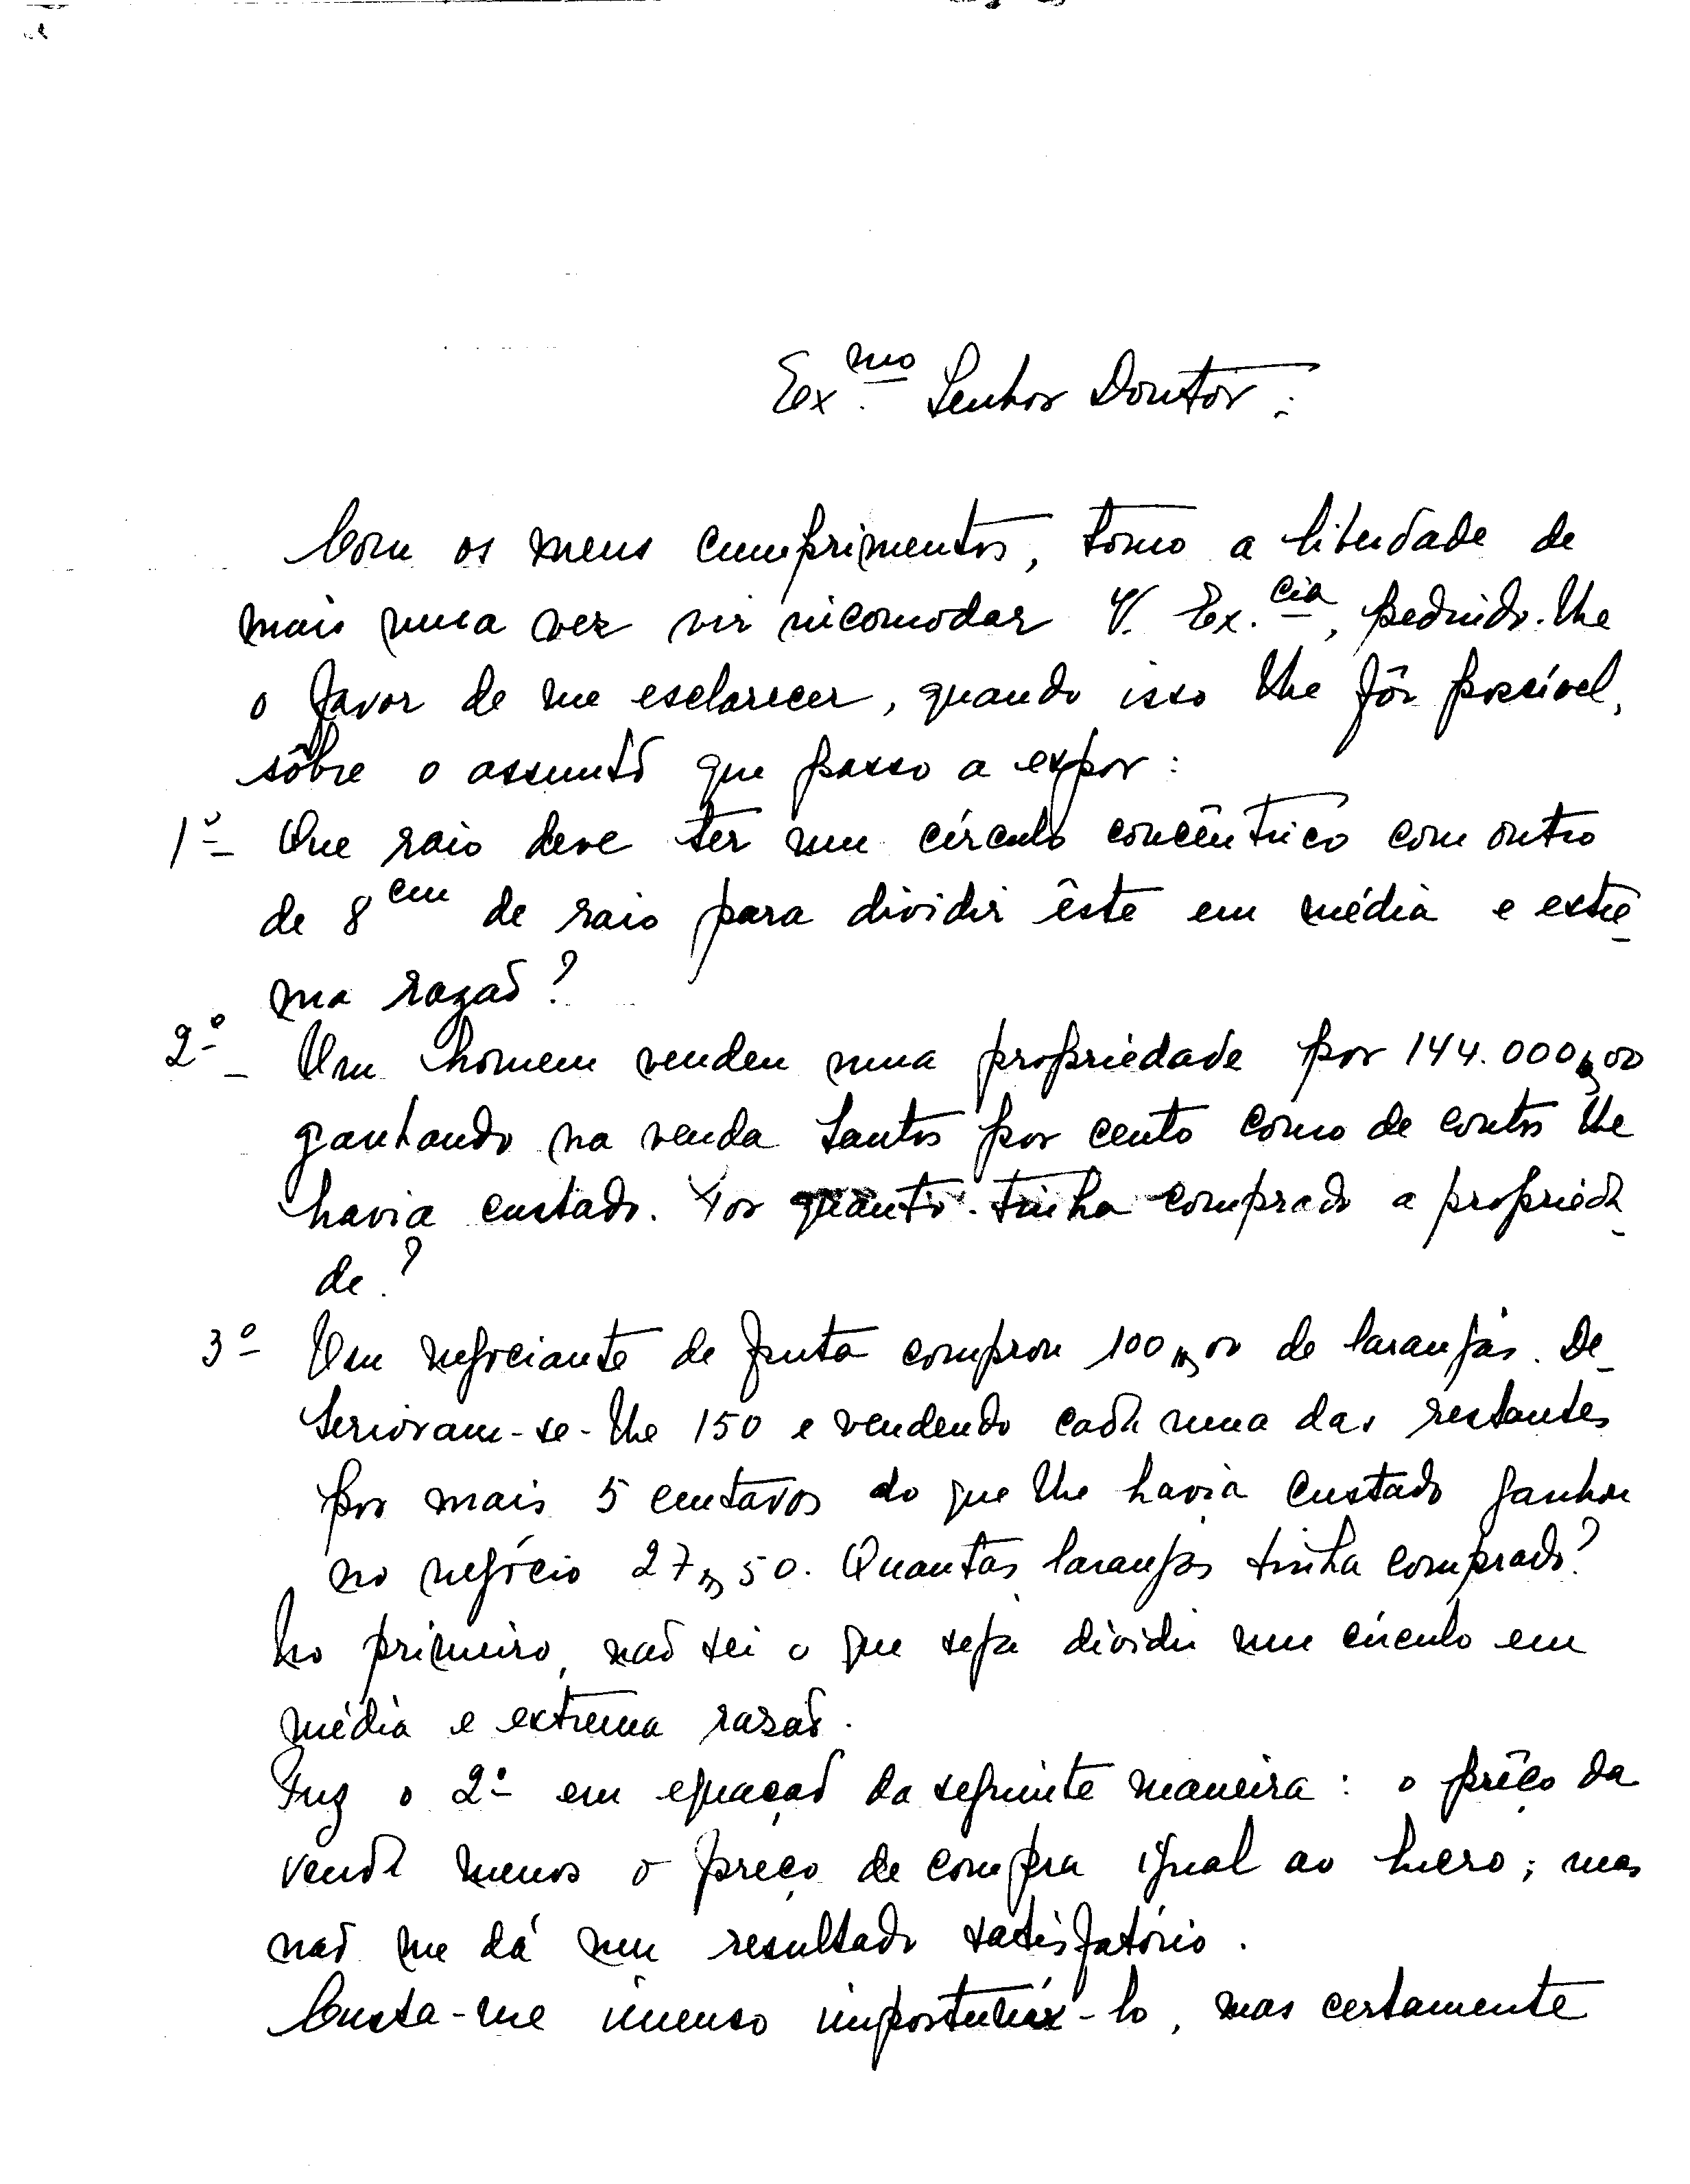 Ex.mo Senhor Doutor:
Com os meus cumprimentos, tomo a liberdade de
mais uma vez vir incomodar V. Ex.cia, pedindo-lhe
o favor de me esclarecer, quando isso lhe fôr possível,
sôbre o assunto que passo a expor:
1º - Que raio deve ter um círculo concêntrico com outro
de 8 cm de raio para dividir êste em média e extre
ma razão?
2º - Um homem vendeu uma propriedade por 144.000$00
ganhando na venda tantos por cento como de contos lhe
havia custado. Por quanto tinha comprado a proprieda
de?
3º Um negociante de fruta comprou 100$00 de laranjas. De-
terioram-se-lhe 150 e vendendo cada uma das restantes
por mais 5 centavos do que lhe havia custado ganhou
no negócio 27$50. Quantas laranjas tinha comprado?
No primeiro, não sei o que seja dividir um círculo em
média e extrema razão.
Fuz o 2º em equação da seguinte maneira: o prêço da
venda menos o preço de compra igual ao lucro; mas
não me dá um resultado satisfatório.
Custa-me imenso importuná-lo, mas certamente